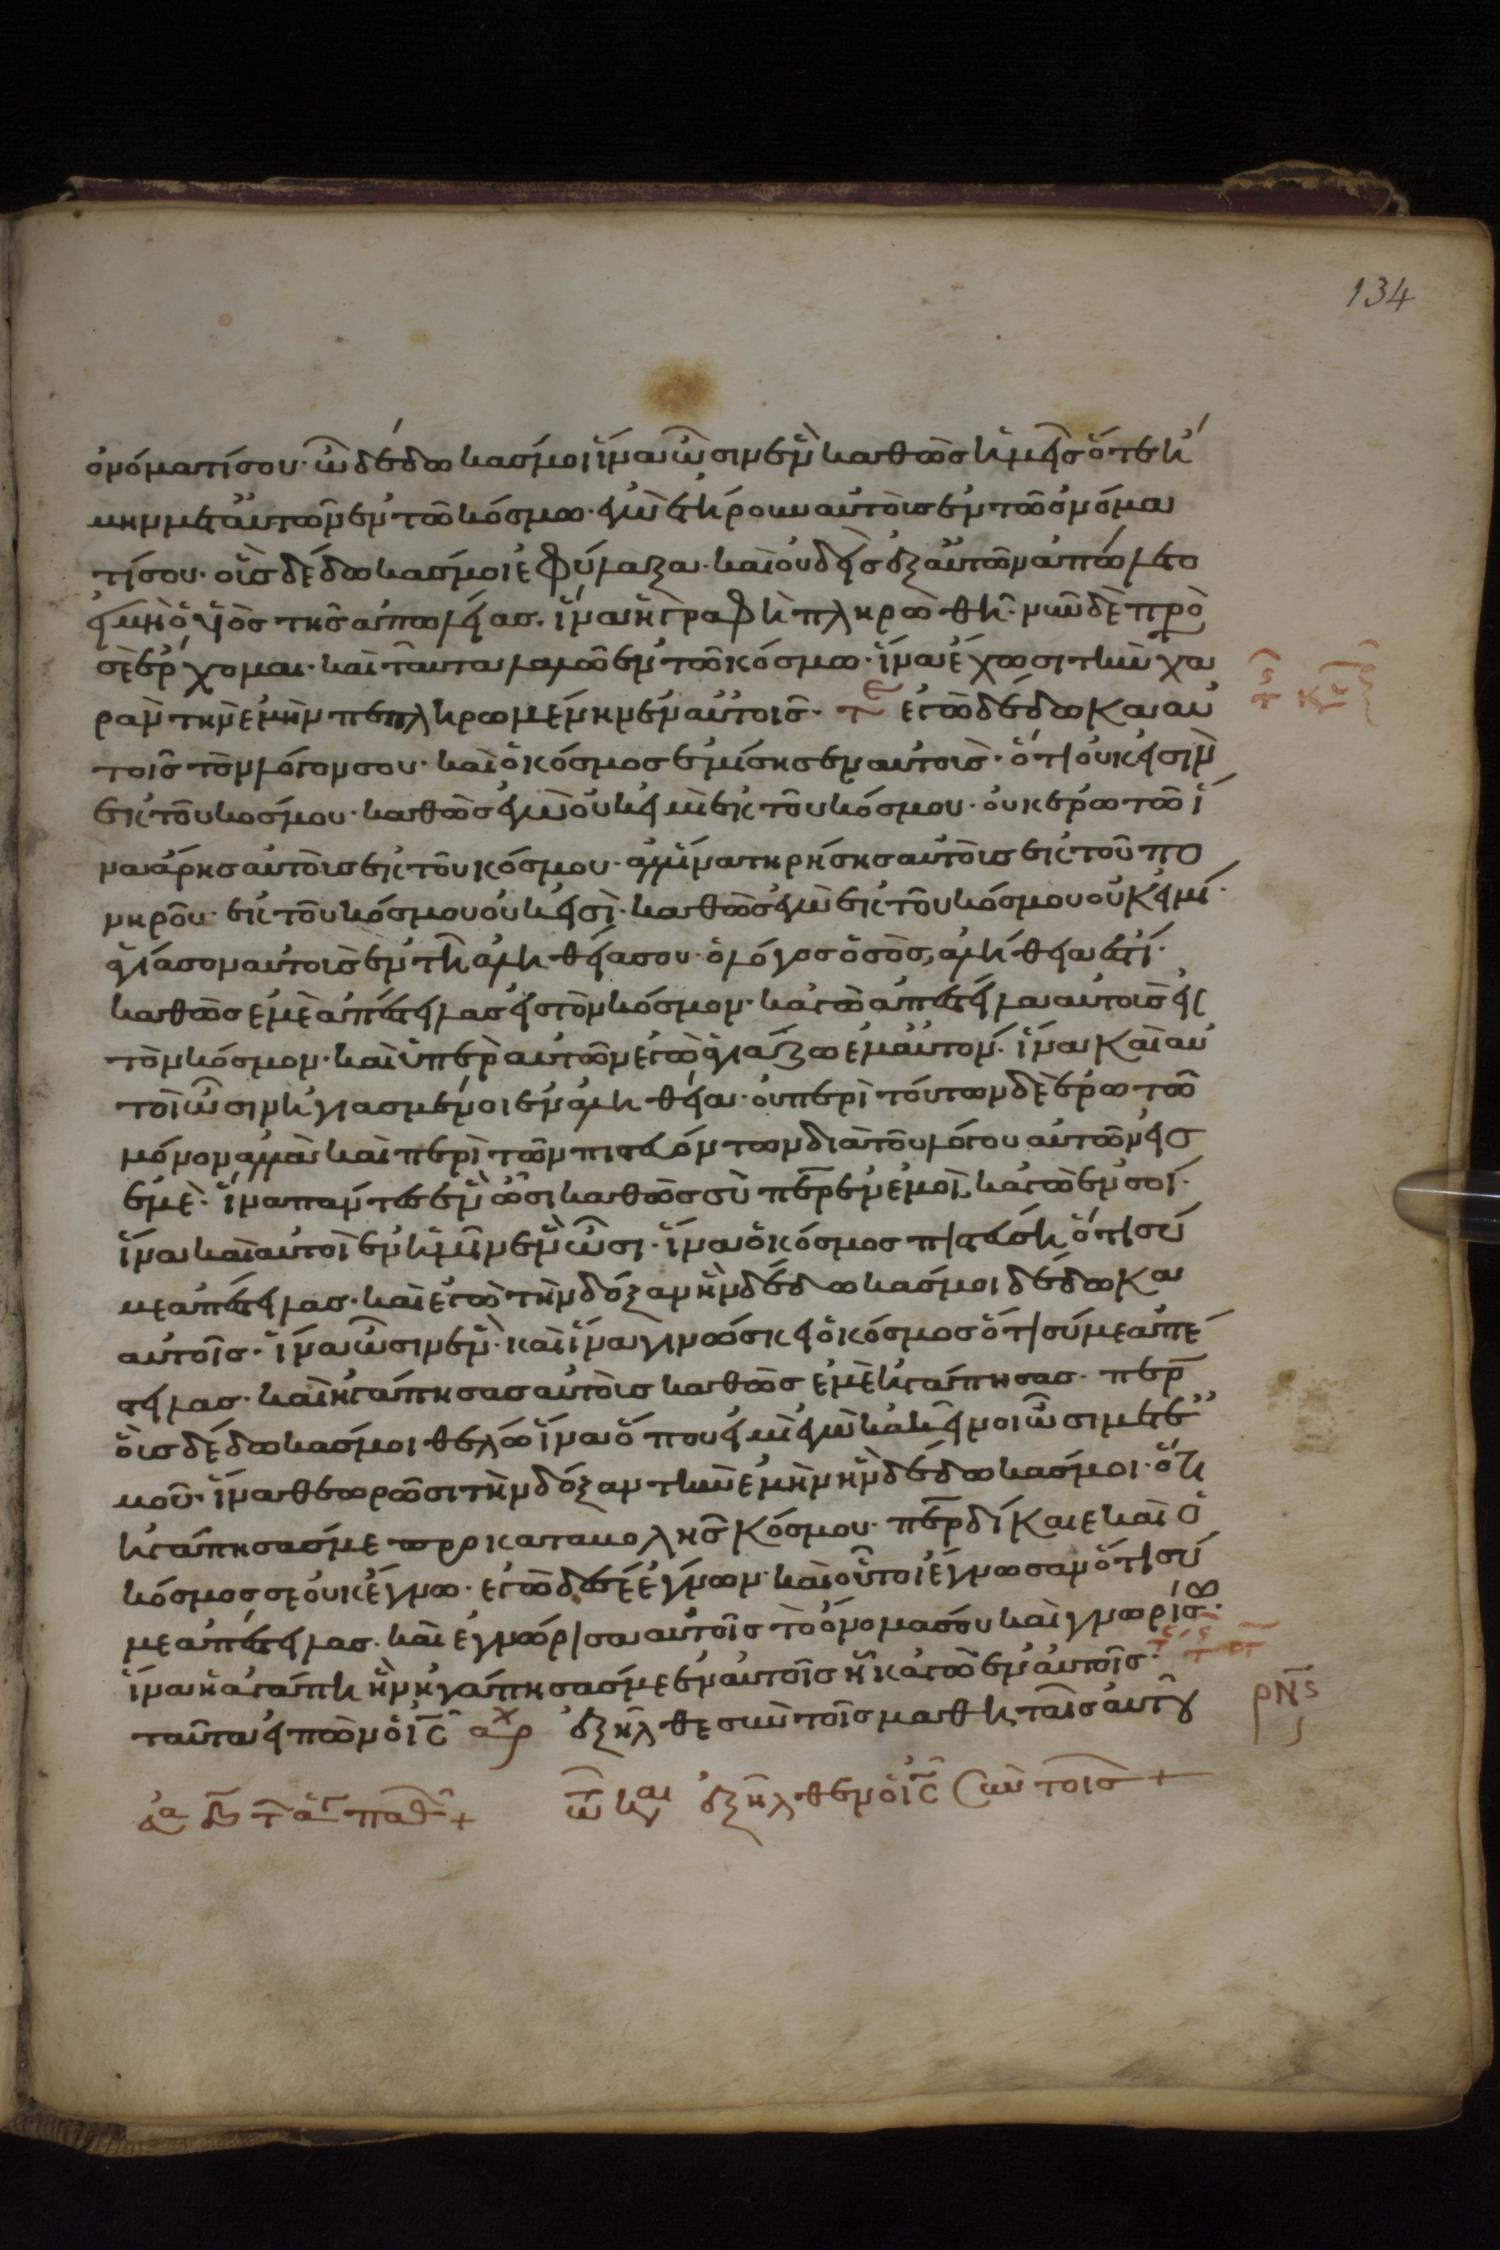 134
ὀνόματίσου· ὧ δέδωκασ μοι ἵνα ὦσιν ἓν καθὼσ ἡμεῖσ ὅτε ἤ
μην μετ αὐτῶν ἐν τῶ κόσμω· ἐγὼ ἐτήρουν αὐτοὺσ ἐν τῶ ὀνόμα
τίσου· οὓσ δέδωκασ μοι ἐφύλαξα· καὶ οὐδεὶσ ἐξ αὐτῶν ἀπώλετο
εἰ μὴ ὁ υἱὸσ τῆσ ἀπωλείασ. ἵνα ἡ γραφὴ πληρωθῆ· νῦν δὲ πρὸ
σὲ ἔρχομαι· καὶ ταῦτα λαλῶ ἐν τῶ κόσμω· ἵνα ἔχωσι τὴν χα
ρὰν τὴν ἐμὴν πεπληρωμένην ἐν αὐτοῖσ· ἐγὼ δέδωκα αὐ
τοῖσ τὸν λόγον σου· καὶ ὁ κόσμοσ ἐμίσησεν αὐτοὺσ· ὅτι οὐκ εἰσὶν
ἐκ τοῦ κοσμου· καθὼσ ἐγὼ οὐκ εἰμὶ ἐκ τοῦ κόσμου· οὐκ ἐρωτῶ ἵ
να ἄρησ αὐτοὺσ ἐκ τοῦ κόσμου· ἀλλ ἵνα τηρήσησ αὐτοὺσ ἐκ τοῦ πο
νηροῦ· ἐκ τοῦ κόσμου οὐκ εἰσὶ· καθὼσ ἐγὼ ἐκ τοῦ κόσμου οὐκ εἰμί·
ἁγίασον αὐτοὺσ ἐν τῆ ἀληθεία σου· ὁ λόγοσ ὁ σὸσ, ἀλήθεια ἐστί·
καθὼσ ἐμὲ ἀπέστειλασ εἰσ τὸν κόσμον· κἀγὼ ἀπέστειλα αὐτοὺσ εἰσ
τὸν κόσμον· καὶ ὑπὲρ αὐτῶν ἐγὼ ἁγιάζω ἐμαυτόν· ἵνα καὶ αὐ
τοὶ ὦσιν ἡγιασμένοι ἐν ἀληθεία· οὐ περὶ τούτων δὲ ἐρωτῶ
μόνον ἀλλὰ καὶ περὶ τῶν πιστευόντων διὰ τοῦ λόγου αὐτῶν εἰσ
ἐμὲ· ἵνα πάντεσ ἓν ὦσι καθὼσ σὺ περ ἐν ἐμοὶ, κἀγὼ ἐν σοί·
ἵνα καὶ αὐτοὶ ἐν ἡμῖν ἓν ὦσι· ἵνα ὁ κόσμοσ πιστεύση ὅτι σύ
με ἀπέστειλασ· καὶ ἐγὼ τὴν δόξαν ἣν δέδωκασ μοι δέδωκα
αὐτοῖσ· ἵνα ὦσιν ἓν· καὶ ἵνα γινώσκει ὁ κόσμοσ ὅτι σύ με ἀπέ
στειλασ· καὶ ἠγάπησασ αὐτοὺσ καθὼσ ἐμὲ ἠγάπησασ· περ
οὓσ δέδωκασ μοι θέλω ἵνα ὅπου εἰμὶ ἐγὼ κἀκεῖνοι ὦσι μετ ἐ
μοῦ· ἵνα θεωρῶσι τὴν δόξαν τὴν ἐμὴν ἣν δέδωκασ μοι· ὅτι
ἠγάπησασ με προ καταβολῆσ κόσμου· περ δίκαιε καὶ ὁ
κόσμοσ σε οὐκ ἔγνω· ἐγὼ δέ σε ἔγνων· καὶ οὗτοι ἔγνωσαν ὅτι σύ
με ἀπέστειλασ· καὶ ἐγνώρισα αὐτοῖσ τὸ ὄνομα σου καὶ γνωρίσω·
ἵνα ἡ ἀγάπη ἣν ἠγάπησασ με ἐν αὐτοῖσ ἦ κἀγὼ ἐν αὐτοῖσ·
ταῦτα εἰπὼν ὁ ις αρχ ἐξῆλθε σὺν τοῖσ μαθηταῖσ αὐτοῦ
ρνς
τω κωι ἐξῆλθεν ὁ ις σὺν τοῖσ +